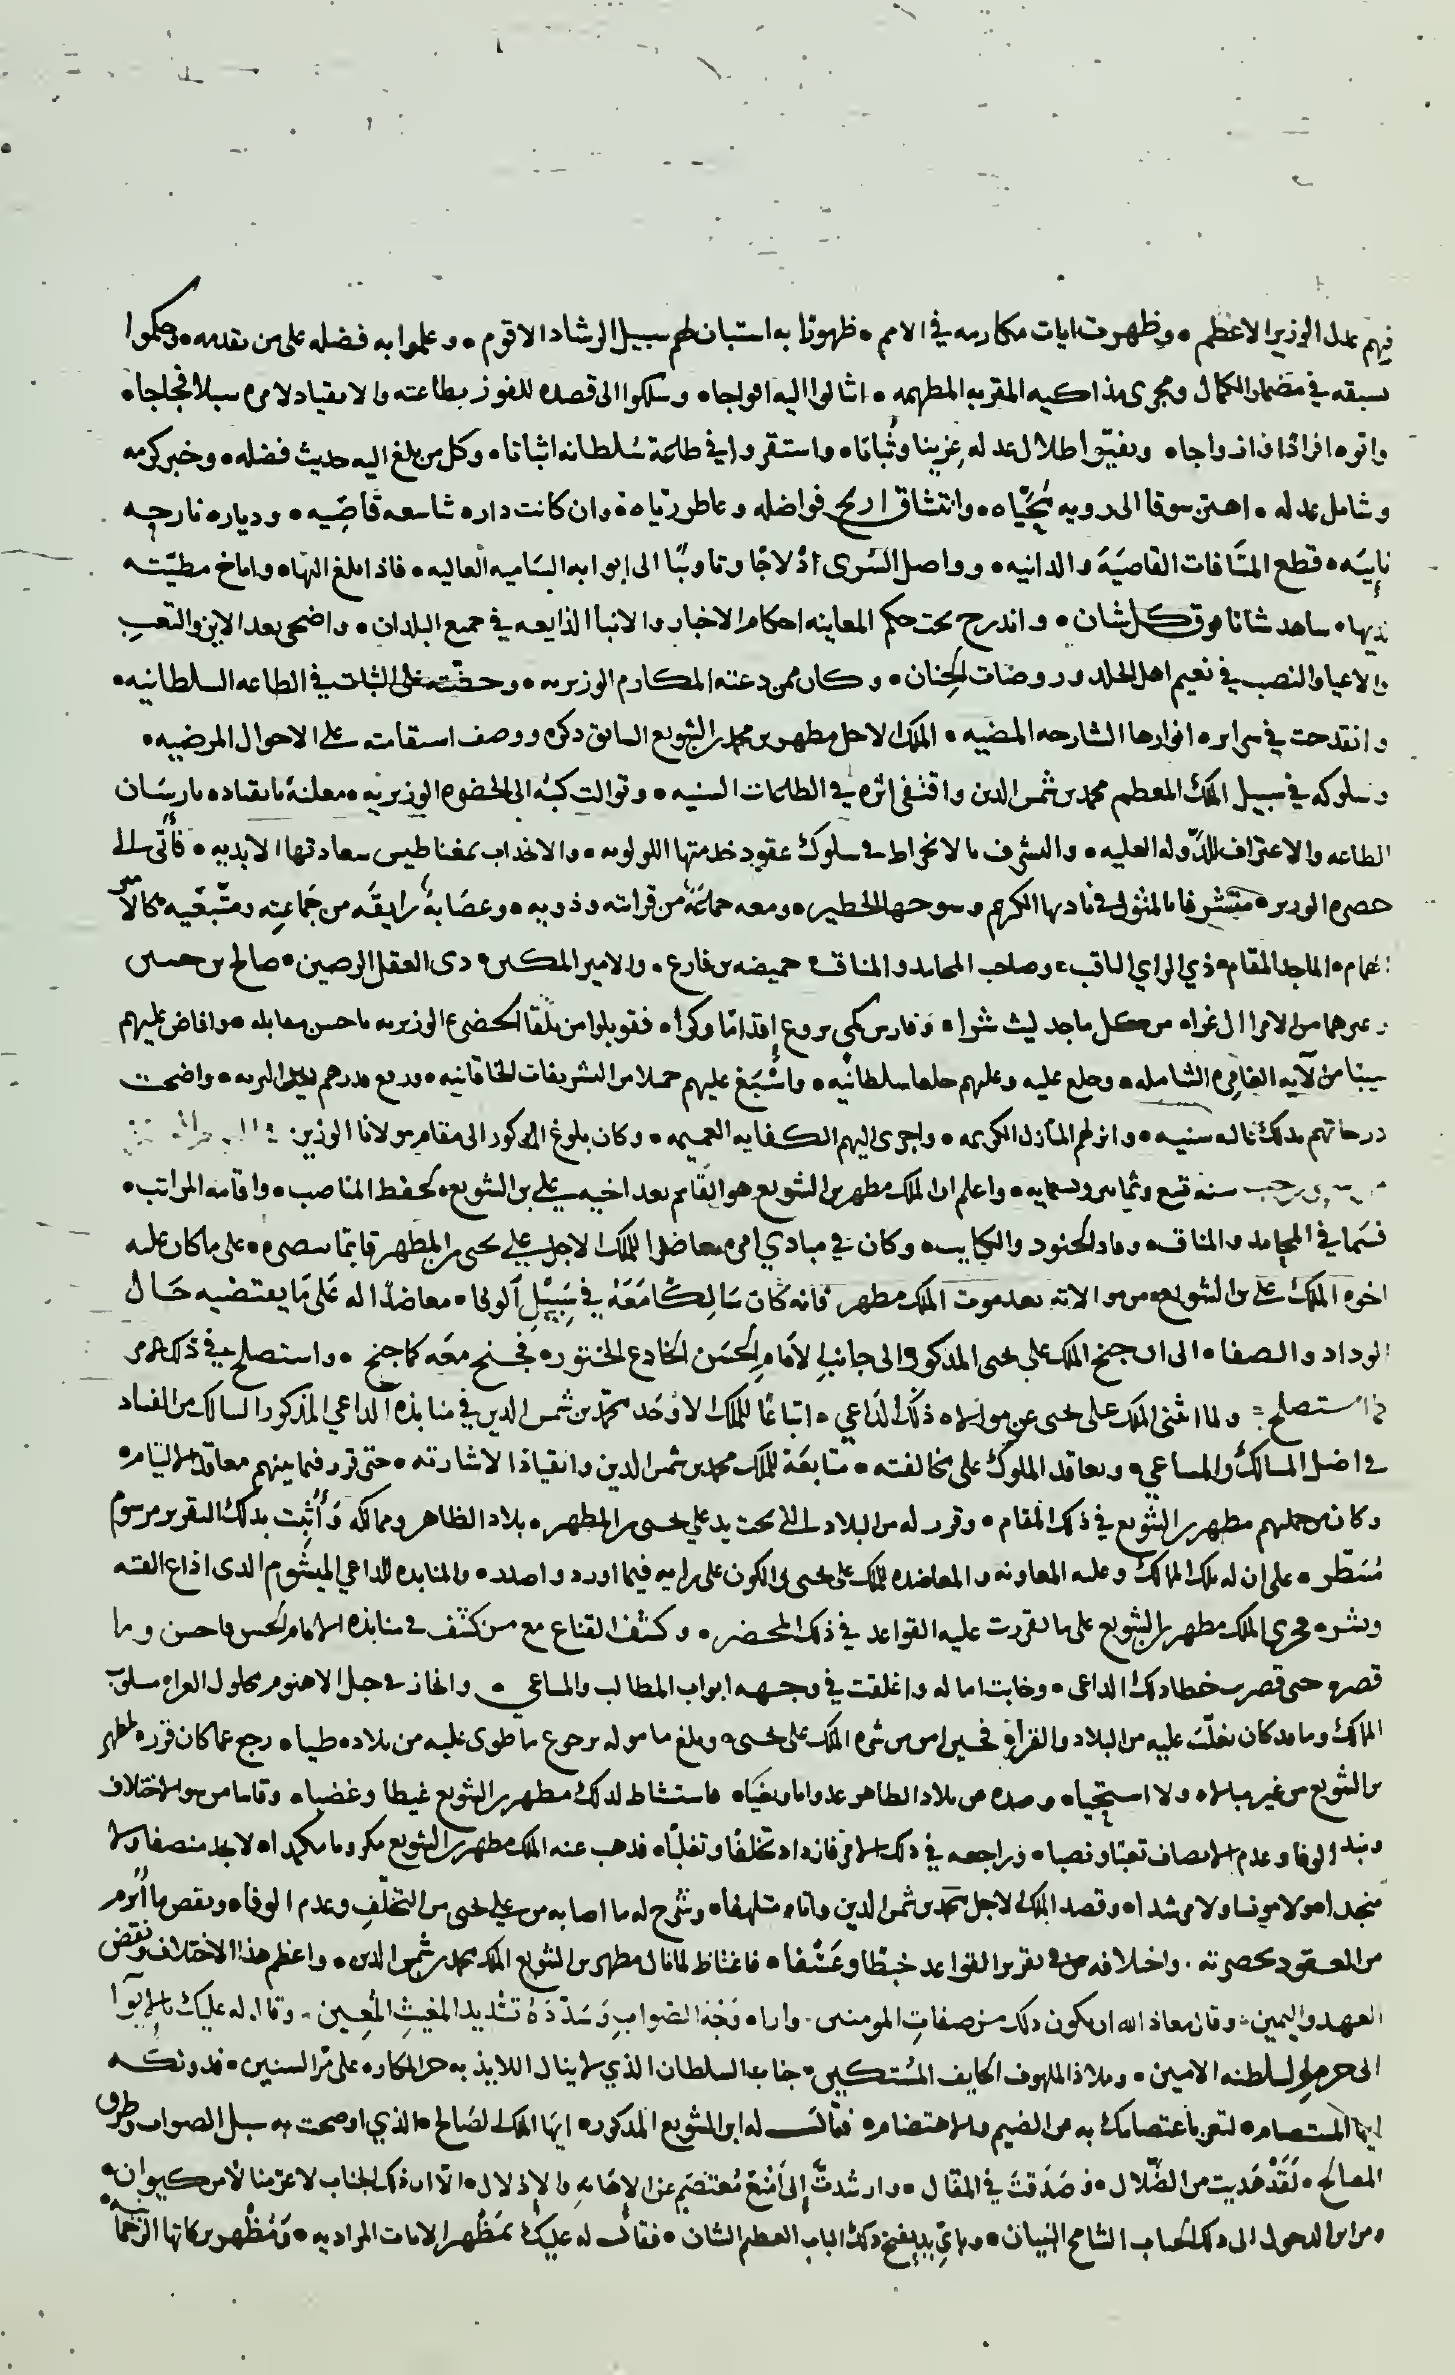 فيهم عدل الوزير الاعظم • وظهرت ايات مكارمه في الامم • ظهورًا به استبان لهم سبيل الرشاد الاقوم • وعلموا به فضله على من تقدمه • وحكموا
بسبقه في مضمار الكمال ومجرى مذاكيه المقربه المطهمه • انثالوا اليه افواجاه وسلكوا الى قصده للفوز بطاعته والانقياد لامره سبلا فجاجاه
واتوه افرادًا وازواجاه وتفيّوا ظلال عدله عزينا وثُباتًا • واستقروا في طاعة سُلطانه اثباتا • وكل من بلغ اليه حديث فضله • وخبر كرمه
وشامل عدله • اهتز شوقا الى رويه مُحَيّاه • وانتشاق اريج فواضله وعاطر ريّاه • وان كانت داره شاسعه قاصِيه • ودياره نازحه
نايَيه • قطع المسَافات القاصيَة والدانيه • وواصل السُرى ادْلاجًا وتاوبيًا الى ابوابه السَاميه العاليه • فاذا بلغ اليها • واناخ مطيّته
لديها • شاهد شانا فوق كل شان • واندرج تحت حكم المعاينه احكام الاخبار والانبا الذايعه في جميع البلدان • واضحى بعد الاين والتعب
والاعيا والنصب في نعيم اهل الخلد وروضات الجنان • وكان ممن دعته المكارم الوزيريه • وحثّته على الثبات في الطاعه السلطانيه •
وانقدحت في سرايره انوارها الشارحه المضيه • الملك الاجل مطهر بن محمد بن الشويع السابق ذكره ووصف استقامته على الاحوال المرضيه •
وسلوكه في سبيل الملك المعظم محمد بن شمس الدين واقتفى اثره في الطاعات السنيه • وتوالت كتبه الى الحضره الوزيريه • معلنة بانقياده بارسَان
الطاعه والاعتراف للدّوله العليه • والتشرف بالانخراط في سلوك عقود خدمتها اللولويه • والانجذاب بمغناطيس سعادتها الابديه • فأتى الى
حضره الوزير • متشرفا بالمثول في ناديها الكريم وسوحها الخطير • ومعه جماعَة من قرابته وذويه • وعصَابة رايقَه من جَماعتِه ومتّبعيه كالامير
الهمام • الماجد المقام • ذي الراي الثاقب • وصاحب المحامد والمناقب حميضه بن فارع • والامير المكين • ذى العقل الرصين • صالح بن حسين
وغيرهما من الامرا الغراه من كل ماجد ليث شراه • وفارس كمي يروع إقدامًا وكراه • فقوبلوا من تلقا الحضره الوزيريه باحسن مقابله • وافاض عليهم
سيبًا من آلآيه الغامره الشامله • وخلع عليه وعليهم خلعا سلطانيه • واسْبَغ عليهم حملا من التشريفات الخاقانيه • ورفع قدرهم بين البريه • واضحت
درجاتهم بذلك عاليه سنيه • وانزلهم المنازل الكريمه • واجرى اليهم الكفايه العميمه • وكان بلوغ المذكور الى مقام مولانا الوزير في
سنه تسع وثمانين وتسعمايه • واعلم ان الملك مطهر بن الشويع هو القايم بعد اخيه علي بن الشويع • لحفظ المناصب • واقامه المراتب •
قسما في المحامد والمناقب • وقاد الجنود والكتايب • وكان في مبادي امره معاضدا للملك الاجل علي يحيى بن المطهر قايمًا بنصره • على ما كان عليه
اخوه الملك علي بن الشويع • من موالاته بعد موت الملك مطهر فانه كان سَالِكًا مَعَهُ في سَبيْلِ آلوفا • معاضدًا له عَلَى مَا يقتضيه حَال
الوداد والصفا • الى ان جنح الملك علي يحيى المذكور • الى جانب الامَام الحسَن الخادع الختور • فجنح معَه كما جنح • واستصلح في ذلك الامر
ما استصلح • ولما انثنى الملك على يحيى عن موالاه ذلك الدَاعي • اتباعًا للملك الاوْحَد محمّد بن شمس الدين في منابذة الداعي المذكور السالك من الفساد
في اضل المسالك والمساعي • وتعاقد الملوك على مخالفته • متابعَة للملك محمد بن شمس الدين وانقيادًا لاشارته • حتى قرر فيما بينهم معاقد الالتيام
وكان من جملتهم مطهر بن الشويع في ذلك المقام • وقرر له من البلاد التي تحت يد علي يحيى بن المطهر • بلاد الظاهر وممالكه وَأُثبت بذلك التقرير مرسوم
مُسَطّر • على ان له تلك الممالك وعليه المعاونه والمعاضده للملك على يحيى والكون على رايه فيما اورد واصدر • والمنابذه للداعي الميشوم الذى اذاع الفتنه
ونشر • فجرى الملك مطهر بن الشويع على ما تقررت عليه القواعد في ذلك المحضر • وكشف القناع مع من كشف في منابذة الامام الحسن فاحسن وما
قصر • حتى قصرت خطا ذلك الداعى • وخابت اماله واغلقت في وجهه ابواب المطالب والمساعي • وانحاز في جبل الاهنوم محلول العراه مسلوب
الممالك وما قد كان تغلّبَ عليه من البلاد والقراه فحين امن من شره الملك على يحيى • وبلغ مامُوله برجوع ما طوى عليه من بلاده طياه رجع عما كان قرره لمطهر
بن الشويع من غير مبالاه ولا استحياه وصده عن بلاد الظاهر عدوانا وبغيَاه فاستشاط لذلك مطهر بن الشويع غيظا وغضبا • وقاسا من هوالاختلاف
ونبذ الوفا وعدم الانصاف تعبًا ونصبا • وراجعه في ذلك الامر فازداد تخلّفًا وتغلّبًا • فذهب عنه الملك مطهر بن الشويع مكروبا مكمداه لا يجد منصفا ولا
منجدا • ولا مونسا ولا مرشدا • وقصد الملك الاجل محمد بن شمس الدين واتاه متلهفا • وشرح له ما اصابه من علي يحيى من التخلّفِ وعدم الوفا • ونقض ما أُبرم
من العقود بحضرته • واخلافه من في تقرير القواعد خبطًا وعَسْفا • فاغتاظ لما قال مطهر بن الشويع الملك محمد بن شمس الدين • واعظم هذا الاختلاف ونقض
العهد واليمين • وقال معاذ الله ان يكون ذلك من صفات المومنين • واراه وَجْهَ الصَوابِ وَسَدّدَهُ تسْديد المغيثِ المُعِين • وقال له عليك بالايوآ
الى حرم السلطنه الامين • وملاذ الملهوف الخايف المُستكين • جناب السلطان الذي لا ينال اللايذ به حر المكاره على مرّ السنين • فدونكه
ايها المستضام • لتعز باعتصامك به من الضيم والاهتضام • فقالــ له ابن الشويع المذكور • ايّها الملك الصَالح • الذي اوضحت به سبل الصواب وطرق
المصالح • لَقَدْ هَديت من الضّلال • وصَدَقتَ في المقال • وارشدتَّ إِلَى امنَعْ مُعتصَمِ عن الإِهَانهِ والإِذلال • الّا ان ذلك الجناب لاعز منالا من كيوان •
ومن اين الدخول الى ذلك الجناب الشامخ البنيان • وبايّ يدٍ يفتح ذلك الباب العظيم الشان • فقالــ له عليك بمَظْهر الايات المراديه • وَمُظْهر بركاتها الرّحمانيه •